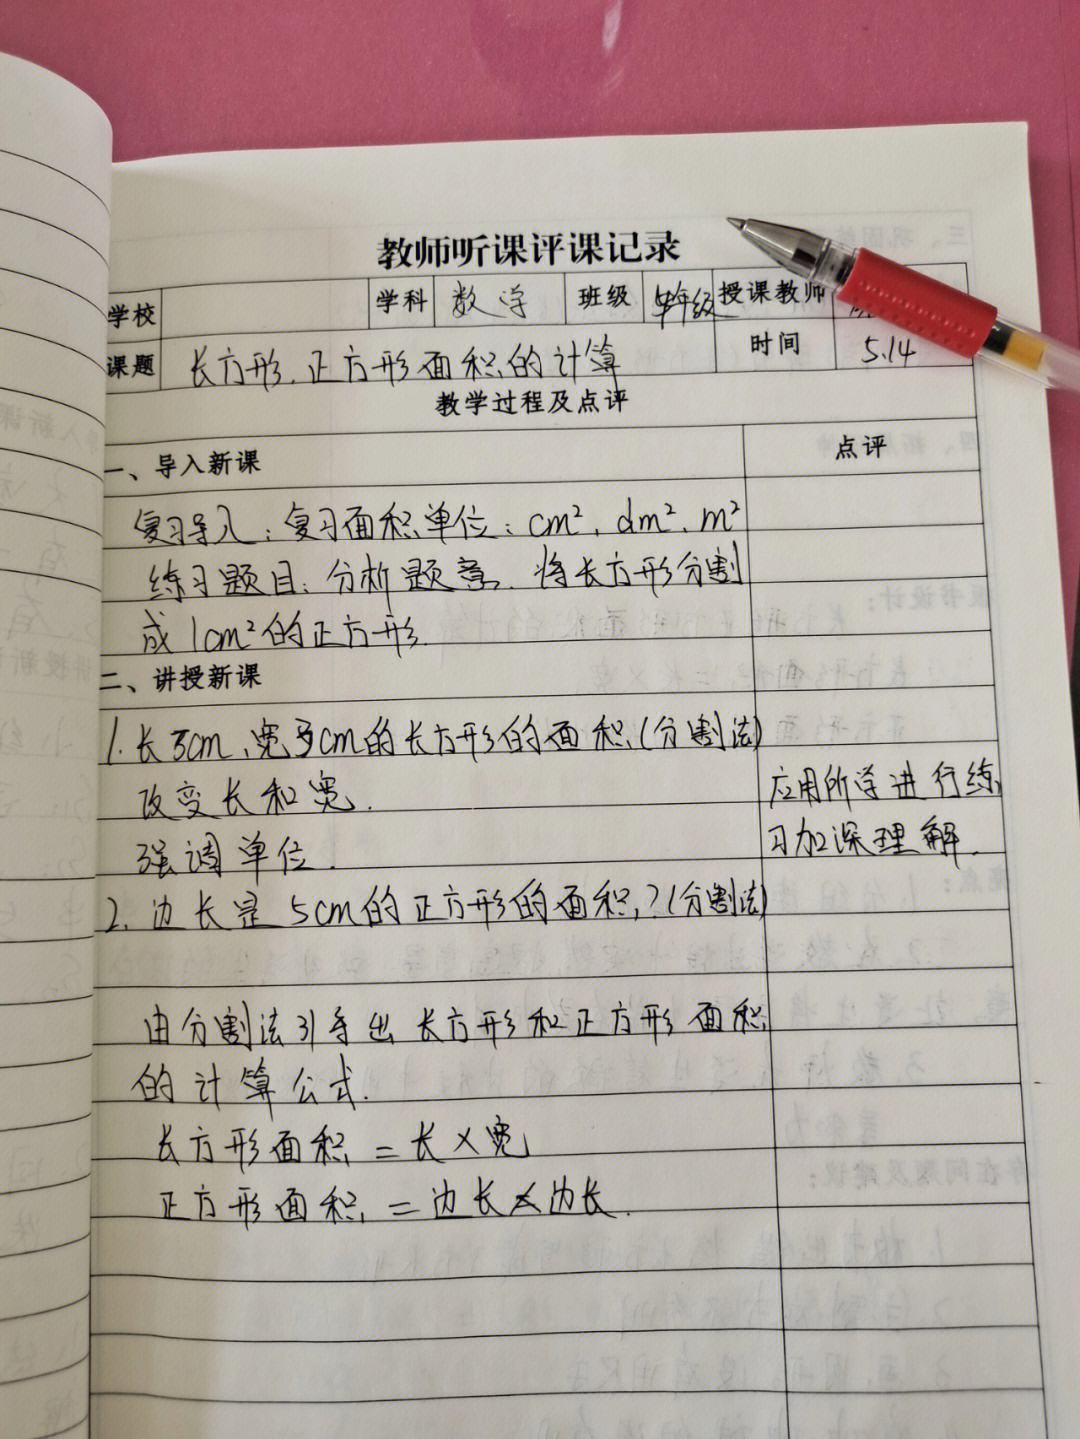 教师听课评课记录
学校 学科 数学 班级 年级 授课教师
课题 长方形、正方形面积的计算 时间 5.14
教学过程及点评
一、导入新课 点评
复习导入：复习面积单位：cm²、dm²、m²
练习题目：分析题意、将长方形分割
成1cm²的正方形.
二、讲授新课
1.长5cm、宽3cm的长方形的面积(分割法)
改变长和宽.
应用所学进行练
强调单位.
习加深理解.
2.边长是5cm的正方形的面积?(分割法)
由分割法引导出长方形和正方形面积
的计算公式.
长方形面积=长×宽
正方形面积=边长×边长.